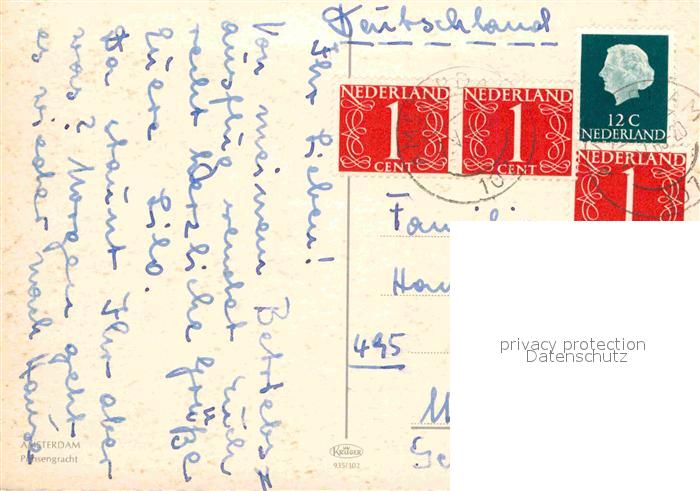 Ihr Lieben!
Von meinem Betriebs=
ausflug sendet Euch
recht herzliche Grüße
Eure Lilo.
Da staunt Ihr aber
was? Morgen geht
es wieder nach Hause
Deutschland
NEDERLAND
1
CENT
NEDERLAND
1
CENT
12 C
NEDERLAND
NEDERLAND
1
Famili
495
privacy protection
Datenschutz
AMSTERDAM
Prinsengracht
KRÜGER
935/102